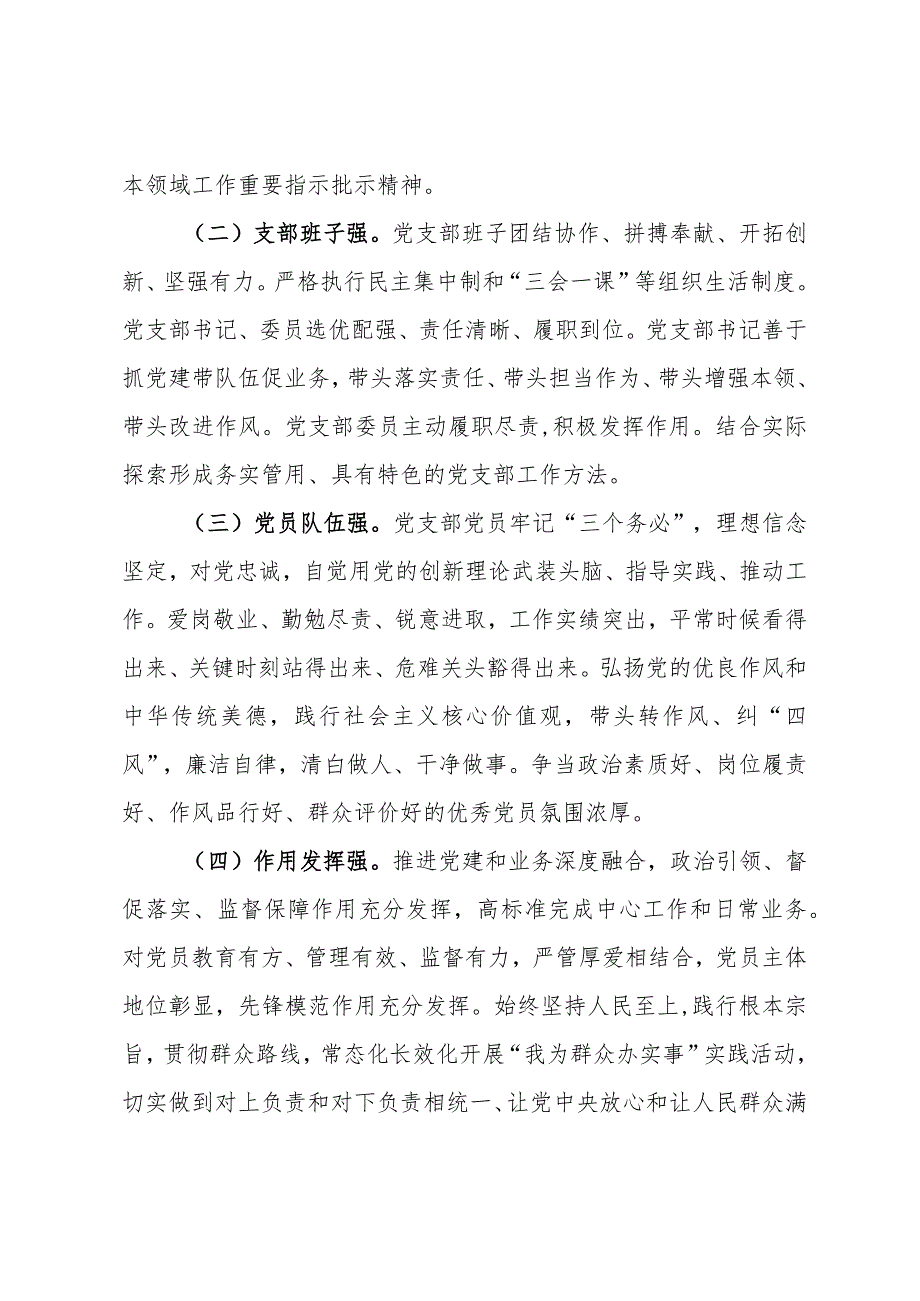 本领域工作重要指示批示精神。
（二）支部班子强。党支部班子团结协作、拼搏奉献、开拓创
新、坚强有力。严格执行民主集中制和“三会一课”等组织生活制度。
党支部书记、委员选优配强、责任清晰、履职到位。党支部书记善于
抓党建带队伍促业务，带头落实责任、带头担当作为、带头增强本领、
带头改进作风。党支部委员主动履职尽责,积极发挥作用。结合实际
探索形成务实管用、具有特色的党支部工作方法。
（三）党员队伍强。党支部党员牢记“三个务必”，理想信念
坚定，对党忠诚，自觉用党的创新理论武装头脑、指导实践、推动工
作。爱岗敬业、勤勉尽责、锐意进取，工作实绩突出，平常时候看得
出来、关键时刻站得出来、危难关头豁得出来。弘扬党的优良作风和
中华传统美德，践行社会主义核心价值观，带头转作风、纠“四
风”，廉洁自律，清白做人、干净做事。争当政治素质好、岗位履责
好、作风品行好、群众评价好的优秀党员氛围浓厚。
（四）作用发挥强。推进党建和业务深度融合，政治引领、督
促落实、监督保障作用充分发挥，高标准完成中心工作和日常业务。
对党员教育有方、管理有效、监督有力，严管厚爱相结合，党员主体
地位彰显，先锋模范作用充分发挥。始终坚持人民至上,践行根本宗
旨，贯彻群众路线，常态化长效化开展“我为群众办实事”实践活动，
切实做到对上负责和对下负责相统一、让党中央放心和让人民群众满